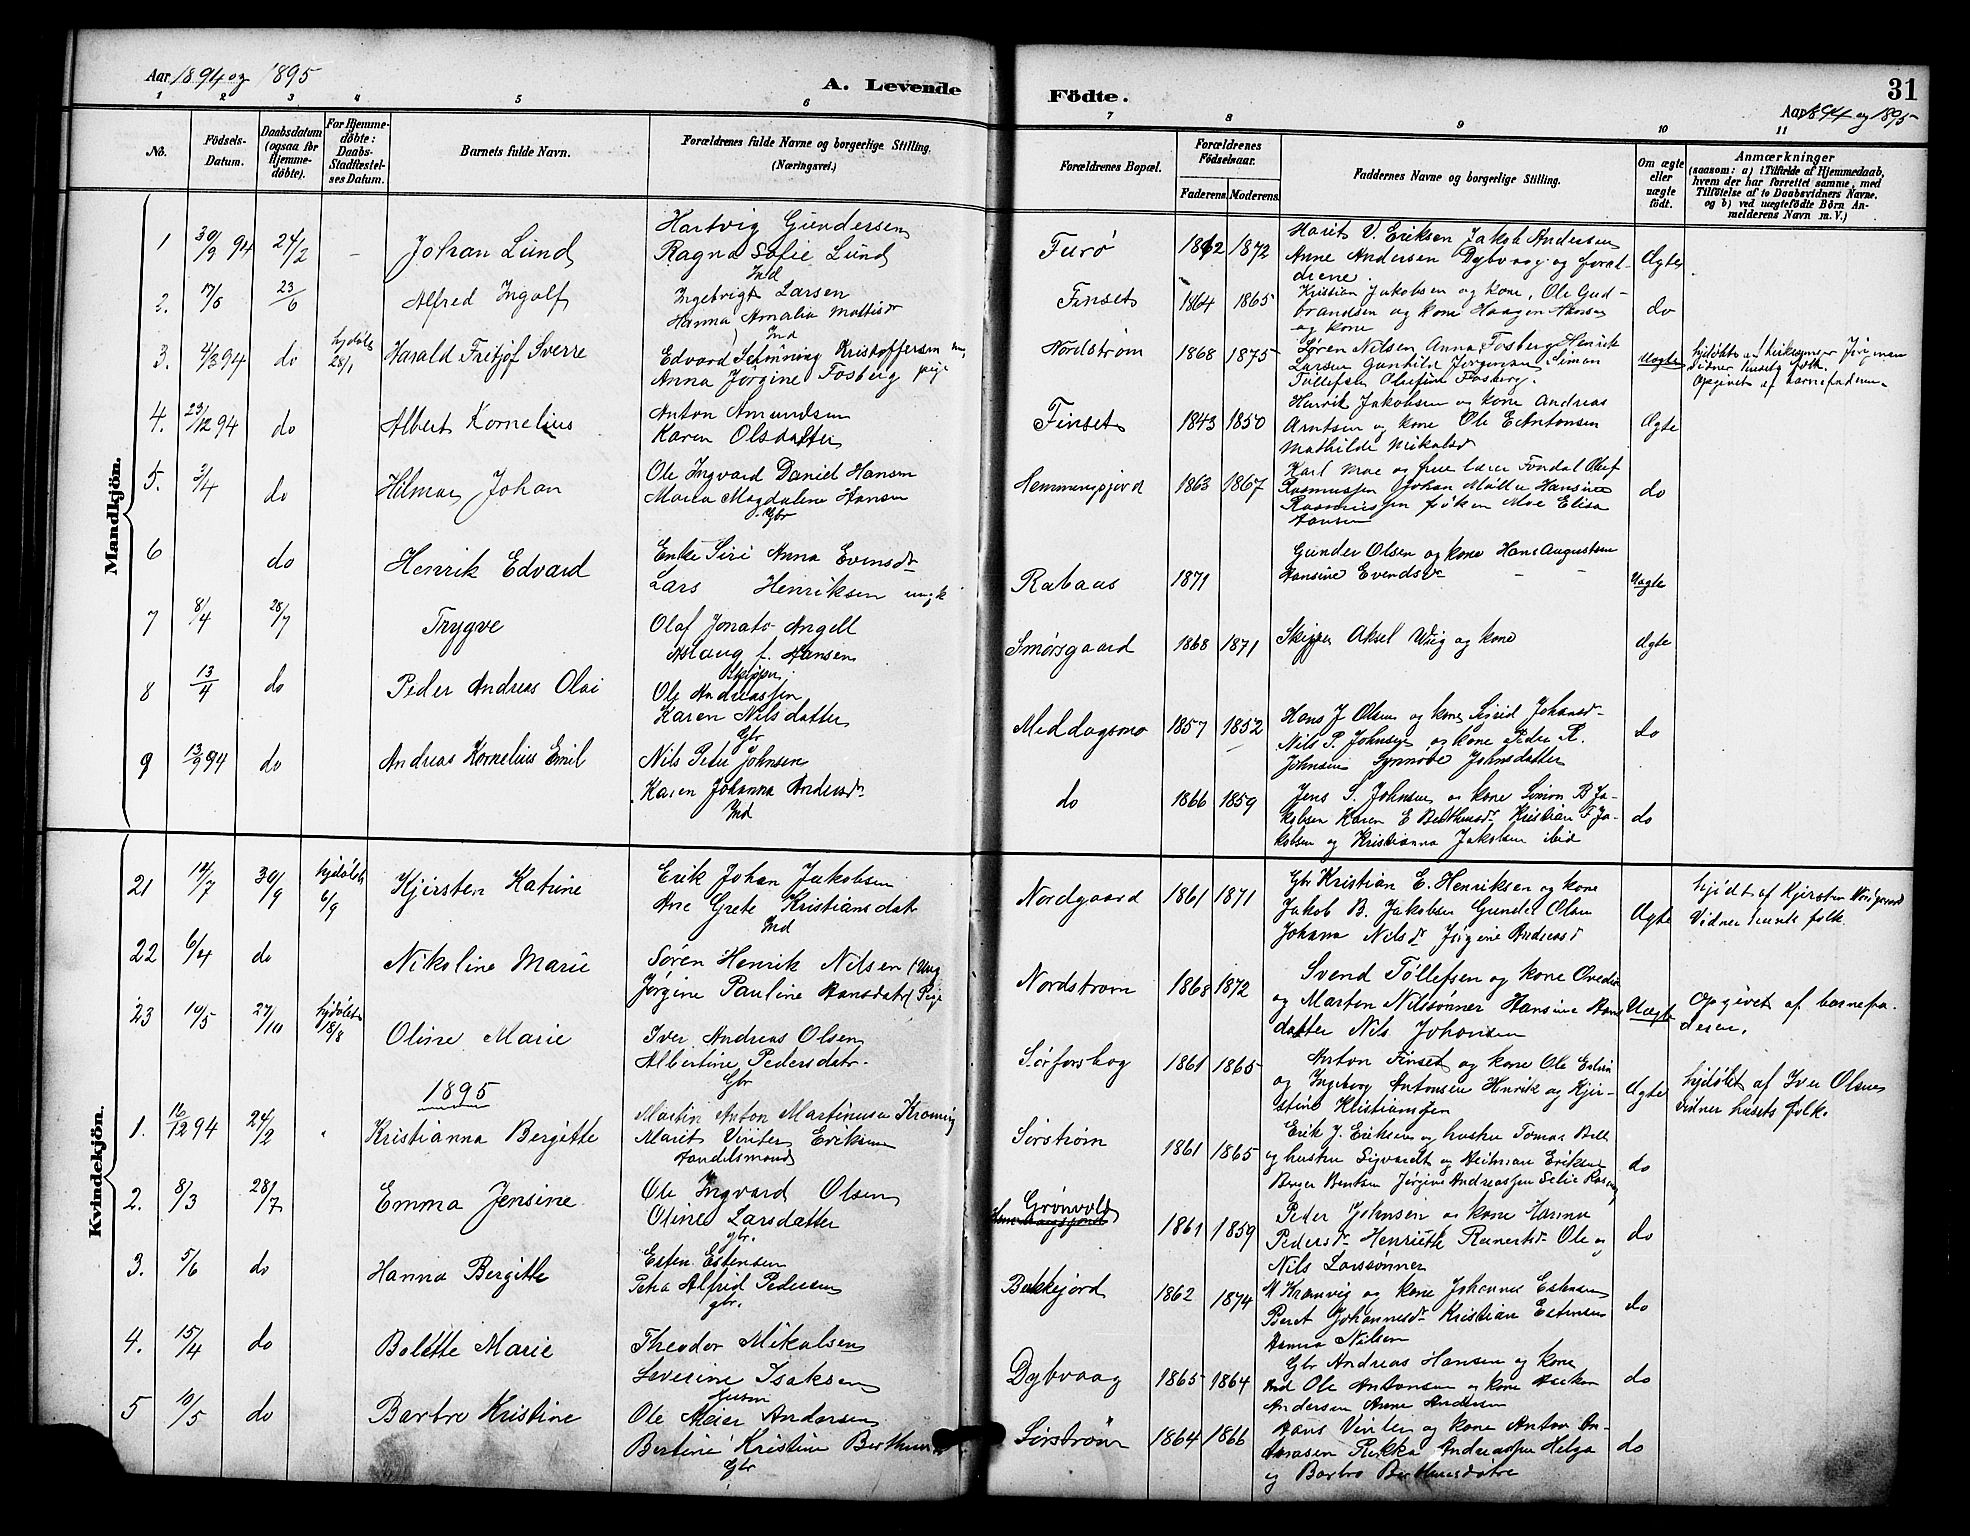 Aar 1894 og 1895
A. Levende Födte.
31
Aar 1894 og 1895
1 2 3 4 5 6 7 8 9 10 11
No.
Födsels-Datum.
Daabsdatum (ogsaa for Hjemme-döbte).
For Hjemme-döbte: Daabs-Stadfæstel-ses Datum.
Barnets fulde Navn.
Forældrenes fulde Navne og borgerlige Stilling. (Næringsvei.)
Forældrenes Bopæl.
Forældrenes Födselsaar.
Faderens. Moderens.
Faddernes Navne og borgerlige Stilling.
Om ægte eller uægte födt.
Anmærkninger
(saasom: a) i Tilfælde af Hjemmedaab,
hvem der har forrettet samme, med
Tilföielse af to Daabsvidners Navne.
og b) ved uægtefödte Börn An-
melderens Navn m. V.)
Mandkjön.
1 30/9 94 24/2 - Johan Lund
Hartvig Gundersen
Ragna Sofie Lund
Ind
Furö 1862 1872
Marit V. Eriksen Jakob Andersen
Anne Andersen Dybvaag og foræl-
drene.
Ægte
2. 7/5 23/6 Alfred Ingolf
Ingebrigt Larsen
Hanna Amalia Mattisdr
Ind
Finset 1864 1865
Kristian Jakobsen og kone, Ole Gud-
brandsen og kone Haagen
og kone
do
3. 4/3 94 do hjdöbt 28/1 Harald Fritjof Sverre
Edvard Schönning Kristoffersen
Anna Jörgine Fosberg pige
Nordström 1868 1875
Sören Nilsen Anna Fosberg Henrik
Larsen Gunhild Jörginsen Simon
Tollefsen Olufine Fosberg.
Uægte
hjdöbt af kirkesanger Jörgensen
Vidner husets folk.
Opgivet af barnefaderen
4. 23/12 94 do Albert Kornelius
Anton Amundsen
Karen Olsdatter
Finset 1843 1850
Henrik Jakobsen og kone Andreas
Arntsen og kone Ole E Antonsen
Mathilde Mikalsd
Ægte
5. 3/4 do Hilmar Johan
Ole Ingvard Daniel Hansen
Maria Magdalene Hansen
Gbr
Hemmingsjord 1863 1867
Karl Moe og frue lærer Fondal Oluf
Rasmussen Johan Möller Hansine
Rasmussen fröken Moe Elisa
Hansen
do
6 do Henrik Edvard
Enke Siri Anna Evensdr
Lars Henriksen ungk
Rabaas 1871
Gunder Olsen og kone Hans Augustsen
Hansine Evendsdr
Uægte
7 8/4 28/7 Trygve
Olaf Jonato Angell
Aslaug f. Hansen
Skipper
Smörsgaard 1868 1871
Skipper Aksel Wiig og kone
Ægte
8 13/4 do Peder Andreas Olai
Ole Andreassen
Karen Nilsdatter
Gbr
Meddagsmo 1857 1852
Hans J Olsen og kone Sigrid Johansd
Nils P. Johnsen og kone Peder R.
Johnsen Synnöve Johnsdatter
do
9 13/9 94 do Andreas Kornelius Emil
Nils Peder Johnsen
Karen Johanna Andersdr
Ind
do 1866 1859
Jens S. Johnsen og kone Simon B Ja-
kobsen Karen E Berthinsdr Kristian F Ja-
kobsen og Kristianna Jakobsen ibid
do
Kvindekjön.
21 14/7 30/9 hjdöbt 6/9 Kjirsten Katrine
Erik Johan Jakobsen
Ane Grete Kristiansdat
Ind
Nordgaard 1861 1871
Gbr Kristian E. Henriksen og kone
Jakob B. Jakobsen Gunder Olsen
Johana Nilsdr Jörgine Andreasd
Ægte
hjdöbt af Kjersten Nordgaard
Vidner husets folk.
22 6/4 do Nikoline Marie
Sören Henrik Nilsen (Ung
Jörgine Pauline Hansdat (Pige
Nordström 1868 1872
Svend Töllefsen og kone Ovedia
og Marten Nilssönner Hansine Hans
datter Nils Johansen
Uægte
Opgivet af barnefa-
deren.
23 10/5 27/10 hjdöbt 18/8 Oline Marie
Iver Andreas Olsen
Albertine Pedersdatr.
Gbr
Sörforshog 1861 1865
Anton Finset og kone Ole Edvin
og Ingeborg Antonsen Henrik og Kjir-
stine Kristiansen
Ægte
hjdöbt af Iver Olsen
vidner husets folk.
1895
1. 16/12 94 24/2 " Kristianna Bergitte
Martin Anton Martinusen Kramvig
Marit Vinter Eriksen
Handelsmand
Sörström 1861 1865
Erik J. Eriksen og hustru Tomas Bell
og hustru Sigvardt og Heitman Eriksen
Berger Bentsen Jörgine Andreassen Selie
do
2. 8/3 28/7 Emma Jensine
Ole Ingvard Olsen
Oline Larsdatter
gbr.
Grönvold 1861 1859
Peder Johnsen og kone Hanna
Pedersdr Henriette Reinertsdr Ole og
Nils Larssönner
do
3. 5/6 do Hanna Bergitte
Esten Estensen
Petra Alfrid Pedersen
gbr.
Bakkejord 1862 1874
M Kramvig og kone Johannes Estensen
Beret Johannesdr Kristian Estensen
Hanna Nilsen
do
4. 15/4 do Bolette Marie
Theodor Mikalsen
Severine Isaksen
Husm
Dybvaag 1865 1864
Gbr Andreas Hansen og kone
Ind Ole Antonsen og kone Haakon
Andersen Anne Andersen
do
5 10/5 do Barbro Kristine
Ole Meier Andersen
Bertine Kristine Berthins
Gbr
Sörström 1864 1866
Hans Vinter og kone Anton An-
dreasen Rikka Andreassen Helga
og Barbro Berthinsdötre
do